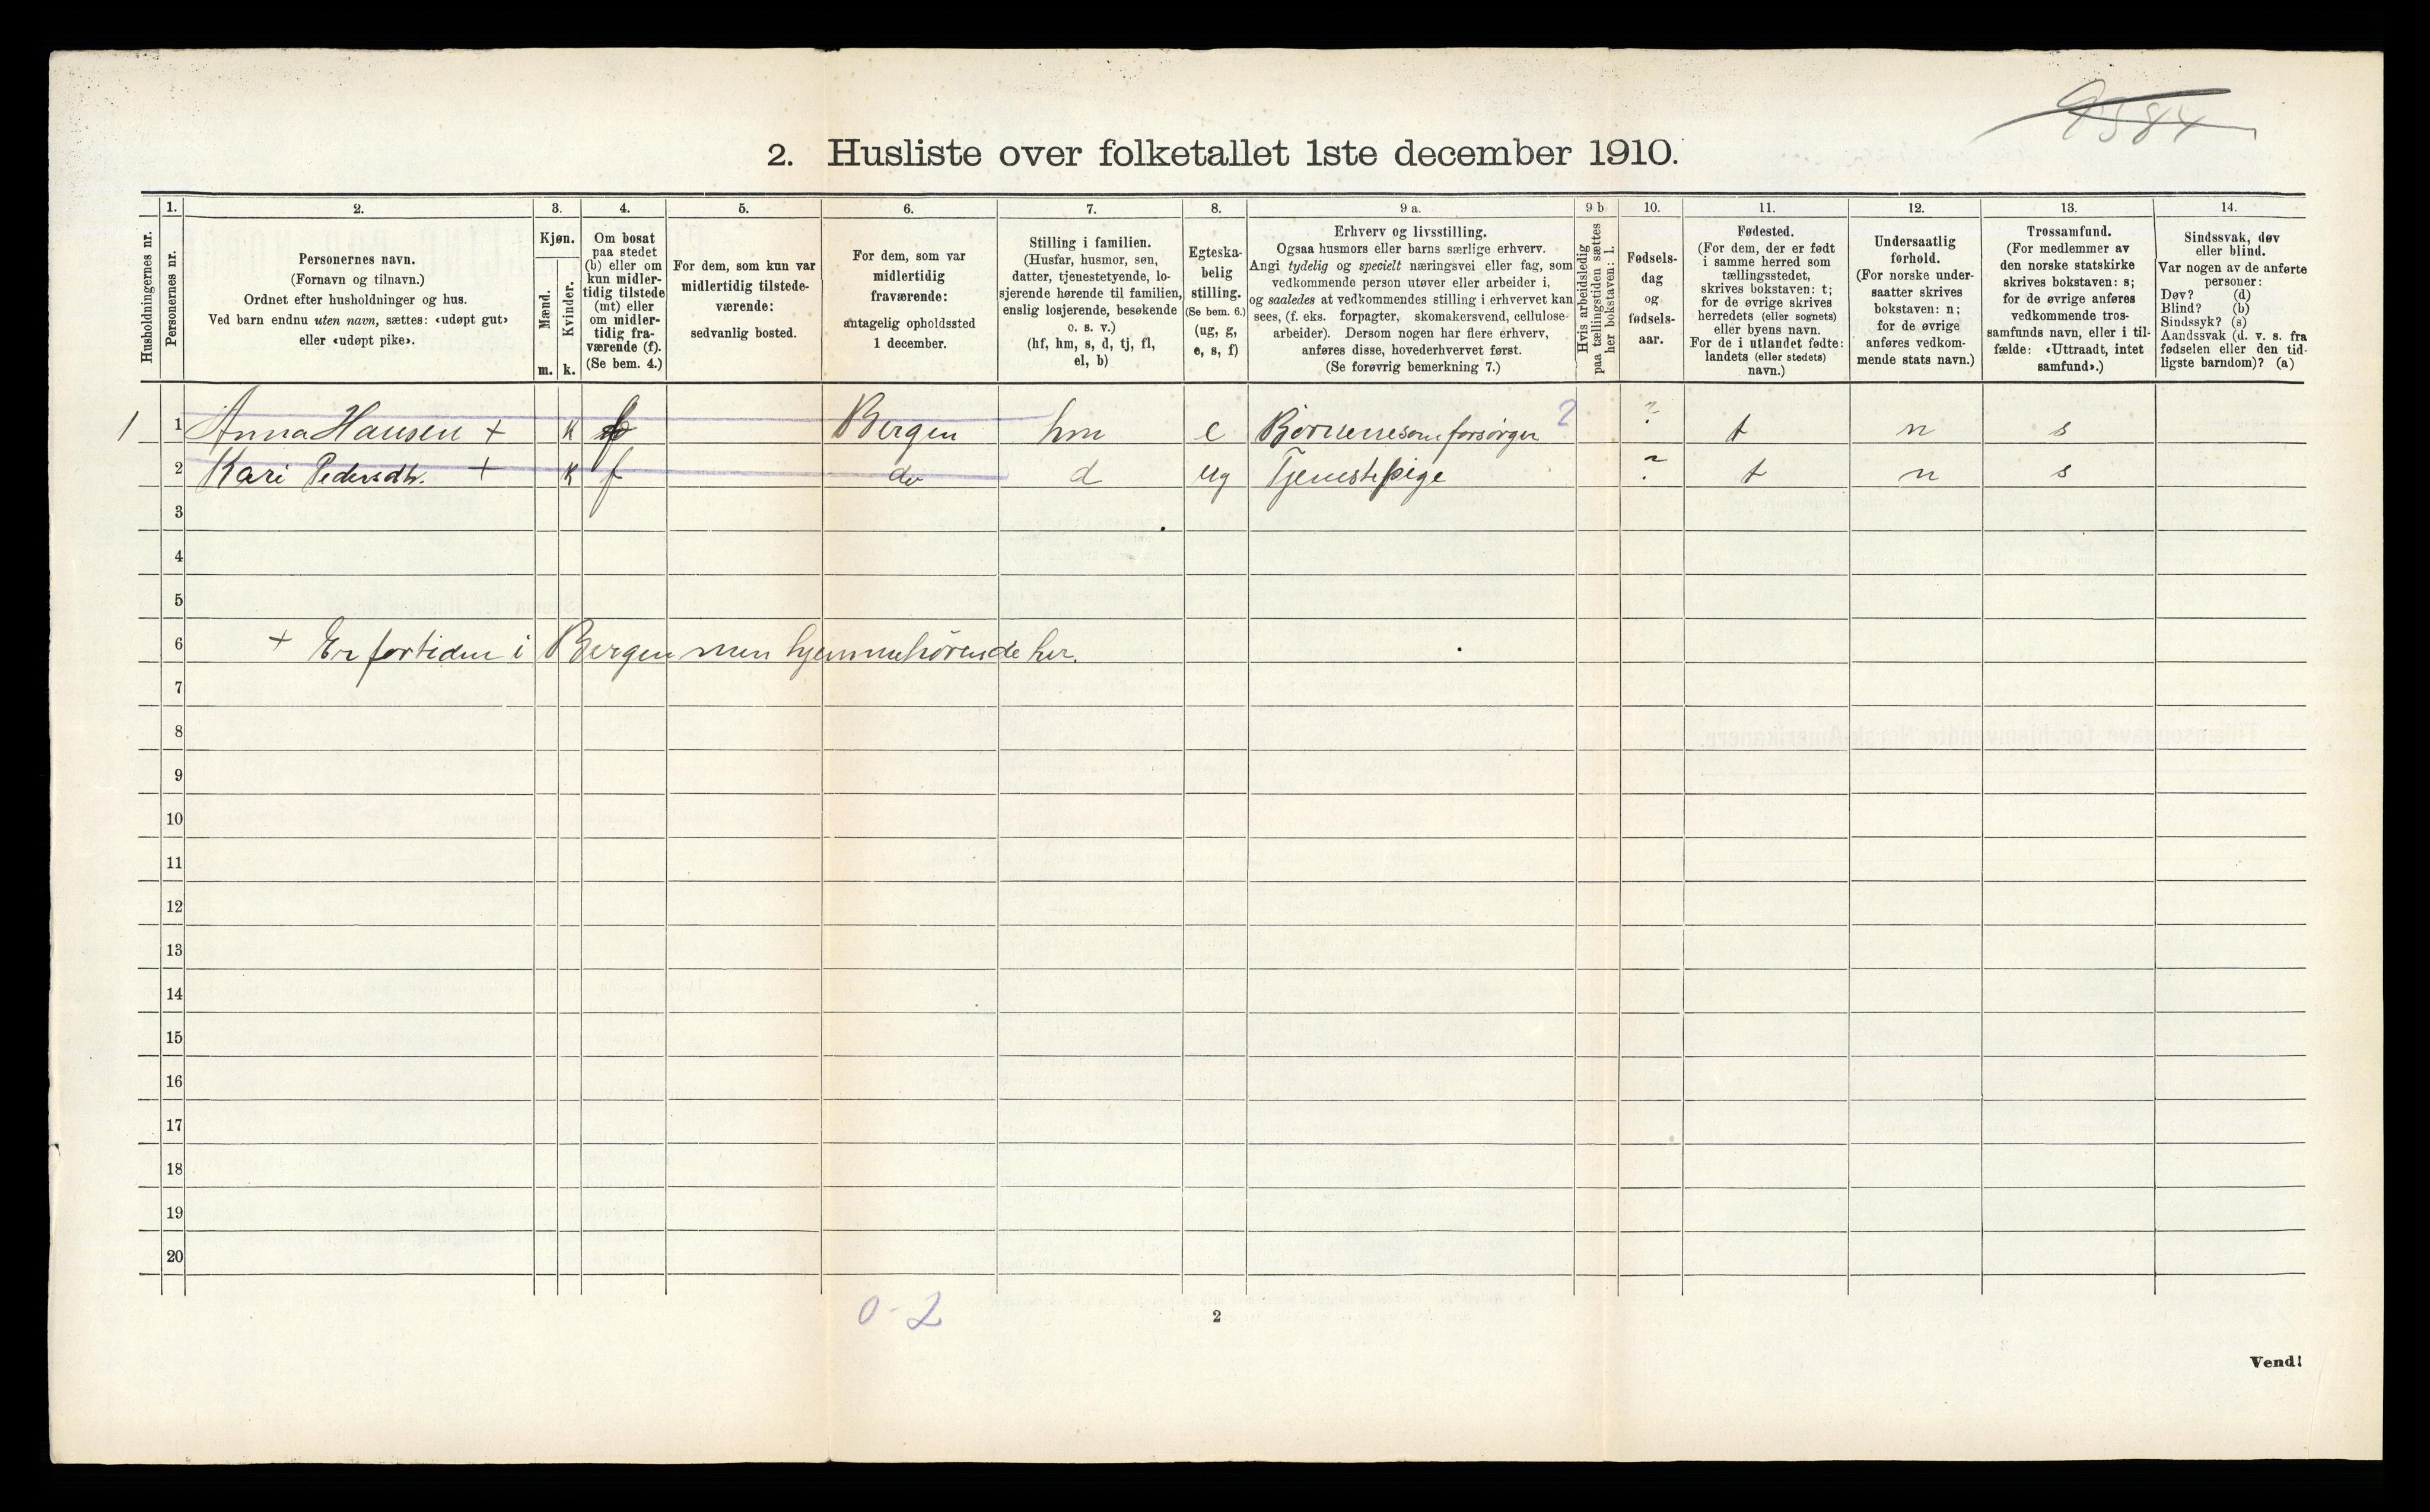 9584
2. Husliste over folketallet 1ste december 1910.
Husholdningernes nr.
1.
Personernes nr.
2.
Personernes navn.
(Fornavn og tilnavn.)
Ordnet efter husholdninger og hus.
Ved barn endnu uten navn, sættes: «udøpt gut»
eller «udøpt pike».
3.
Kjøn.
Mænd.
Kvinder.
m. k.
4.
Om bosat
paa stedet
(b) eller om
kun midler-
tidig tilstede
(mt) eller
om midler-
tidig fra-
værende (f).
(Se bem. 4.)
5.
For dem, som kun var
midlertidig tilstede-
værende:
sedvanlig bosted.
6.
For dem, som var
midlertidig
fraværende:
antagelig opholdssted
1 december.
7.
Stilling i familien.
(Husfar, husmor, søn,
datter, tjenestetyende, lo-
sjerende hørende til familien,
enslig losjerende, besøkende
o. s. v.)
(hf, hm, s, d, tj, fl,
el, b)
8.
Egteska-
belig
stilling.
(Se bem. 6.)
(ug, g,
e, s, f)
9 a.
Erhverv og livsstilling.
Ogsaa husmors eller barns særlige erhverv.
Angi tydelig og specielt næringsvei eller fag, som
vedkommende person utøver eller arbeider i,
og saaledes at vedkommendes stilling i erhvervet kan
sees, (f. eks. forpagter, skomakersvend, cellulose-
arbeider). Dersom nogen har flere erhverv,
anføres disse, hovederhvervet først.
(Se forøvrig bemerkning 7.)
9 b
Hvis arbeidsledig
paa tællingstiden sættes
her bokstaven: l.
10.
Fødsels-
dag
og
fødsels-
aar.
11.
Fødested.
(For dem, der er født
i samme herred som
tællingsstedet,
skrives bokstaven: t;
for de øvrige skrives
herredets (eller sognets)
eller byens navn.
For de i utlandet fødte:
landets (eller stedets)
navn.)
12.
Undersaatlig
forhold.
(For norske under-
saatter skrives
bokstaven: n;
for de øvrige
anføres vedkom-
mende stats navn.)
13.
Trossamfund.
(For medlemmer av
den norske statskirke
skrives bokstaven: s;
for de øvrige anføres
vedkommende tros-
samfunds navn, eller i til-
fælde: «Uttraadt, intet
samfund».)
14.
Sindssvak, døv
eller blind.
Var nogen av de anførte
personer:
Døv? (d)
Blind? (b)
Sindssyk? (s)
Aandssvak (d. v. s. fra
fødselen eller den tid-
ligste barndom)? (a)
1 1 Anna Hansen + k f Bergen hm e Børnene som forsørger 2 ? t n s
2 Kari Pedersdtr. + k f do d ug Tjenestepige ? t n s
3
4
5
6 + Er fortiden i Bergen men hjemmehørende her.
7
8
9
10
11
12
13
14
15
16
17
18
19
20
0-2
2
Vend!